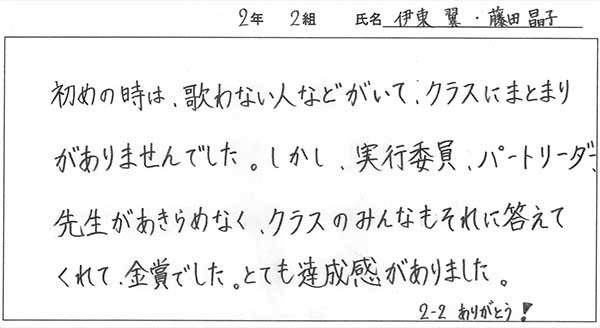 2年 2組 氏名 伊東 翼・藤田 晶子
初めの時は、歌わない人などがいて、クラスにまとまり
がありませんでした。しかし、実行委員、パートリーダー、
先生があきらめなく、クラスのみんなもそれに答えて
くれて、金賞でした。とても達成感がありました。
2-2 ありがとう!